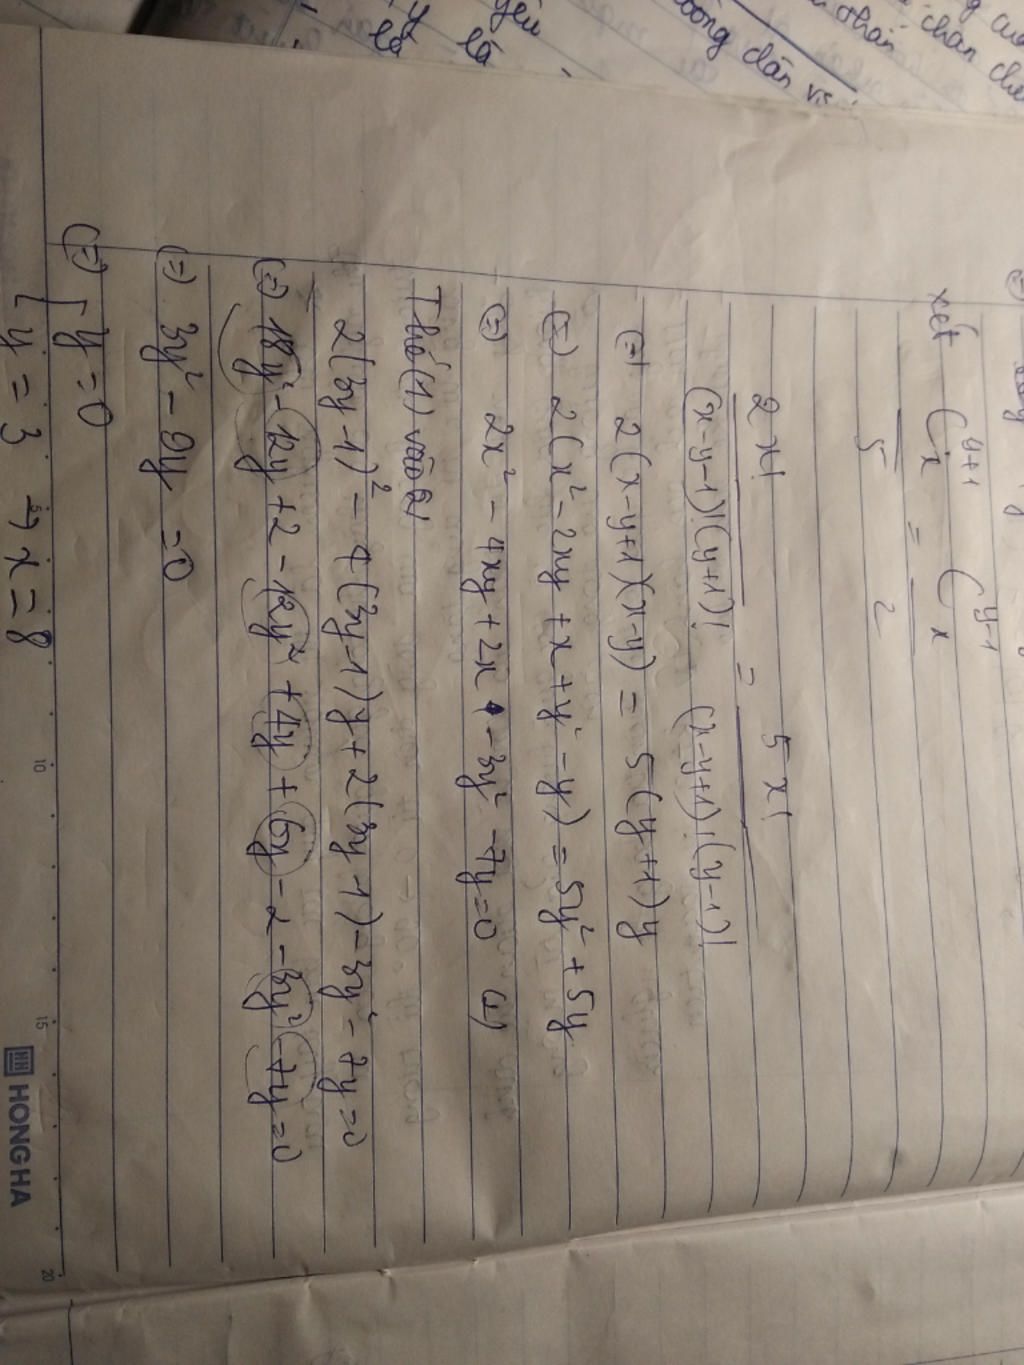 xét C_x^{y+1} / 5 = C_x^{y-1} / 2
2x! / (x-y-1)!(y+1)! = 5x! / (x-y+1)!(y-1)!
(=) 2(x-y+1)(x-y) = 5(y+1)y
(=) 2(x² - 2xy + x + y² - y) = 5y² + 5y
(=) 2x² - 4xy + 2x - 3y² - 7y = 0 (2)
Thế (1) vào (2)
2(3y-1)² - 4(3y-1)y + 2(3y-1) - 3y² - 7y = 0
(=) 18y² - 12y + 2 - 12y² + 4y + 6y - 2 - 3y² - 7y = 0
(=) 3y² - 9y = 0
(=) [ y = 0
[ y = 3 → x = 8
5 10 15 20
HONG HA